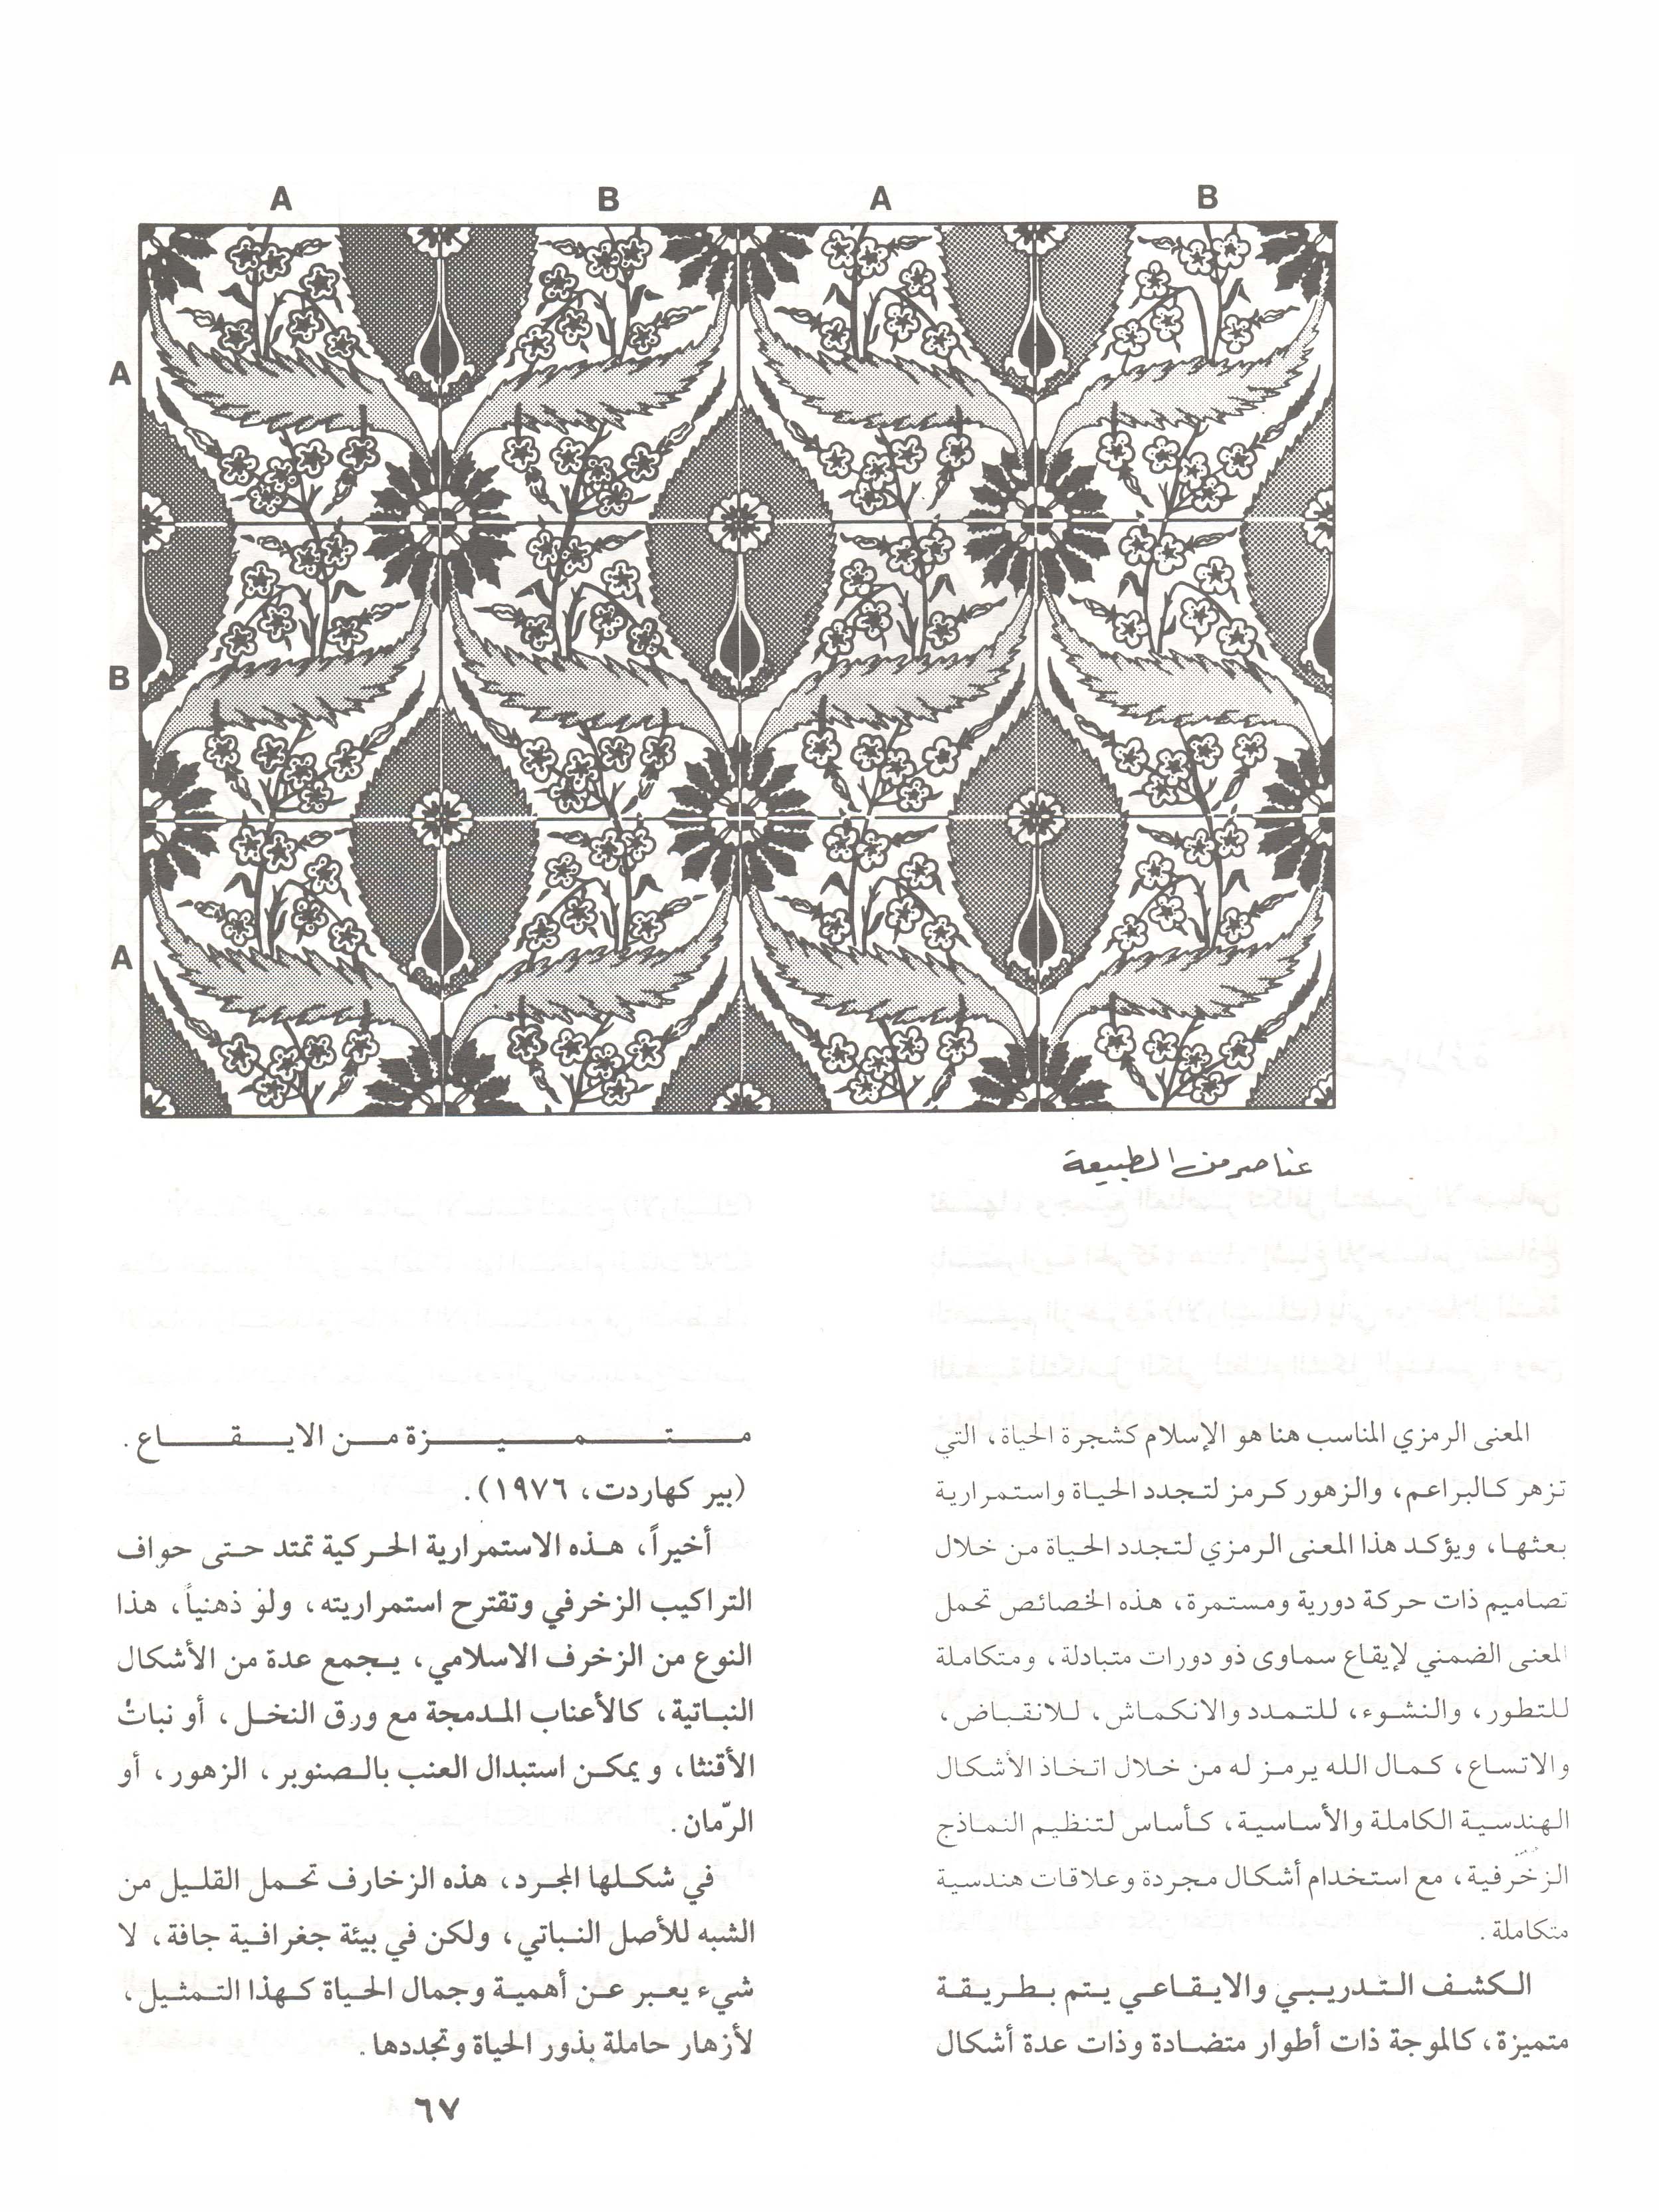 A B A B
A
B
A
عناصر من الطبيعة
المعنى الرمزي المناسب هنا هو الإسلام كشجرة الحياة، التي
تزهر كالبراعم، والزهور كرمز لتجدد الحياة واستمرارية
بعثها، ويؤكد هذا المعنى الرمزي لتجدد الحياة من خلال
تصاميم ذات حركة دورية ومستمرة، هذه الخصائص تحمل
المعنى الضمني لإيقاع سماوى ذو دورات متبادلة، ومتكاملة
للتطور، والنشوء، للتمدد والانكماش، للانقباض،
والاتساع، كمال الله يرمز له من خلال اتخاذ الأشكال
الهندسية الكاملة والأساسية، كأساس لتنظيم النماذج
الزخرفية، مع استخدام أشكال مجردة وعلاقات هندسية
متكاملة.
الكشف التدريبي والايقاعي يتم بطريقة
متميزة، كالموجة ذات أطوار متضادة وذات عدة أشكال
متميزة من الايقاع.
(بير كهاردت، ١٩٧٦).
أخيراً، هذه الاستمرارية الحركية تمتد حتى حواف
التراكيب الزخرفي وتقترح استمراريته، ولو ذهنياً، هذا
النوع من الزخرف الاسلامي، يجمع عدة من الأشكال
النباتية، كالأعناب المدمجة مع ورق النخل، أو نبات
الأقنثا، ويمكن استبدال العنب بالصنوبر، الزهور، أو
الرّمان.
في شكلها المجرد، هذه الزخارف تحمل القليل من
الشبه للأصل النباتي، ولكن في بيئة جغرافية جافة، لا
شيء يعبر عن أهمية وجمال الحياة كهذا التمثيل،
لأزهار حاملة بذور الحياة وتجددها.
٦٧